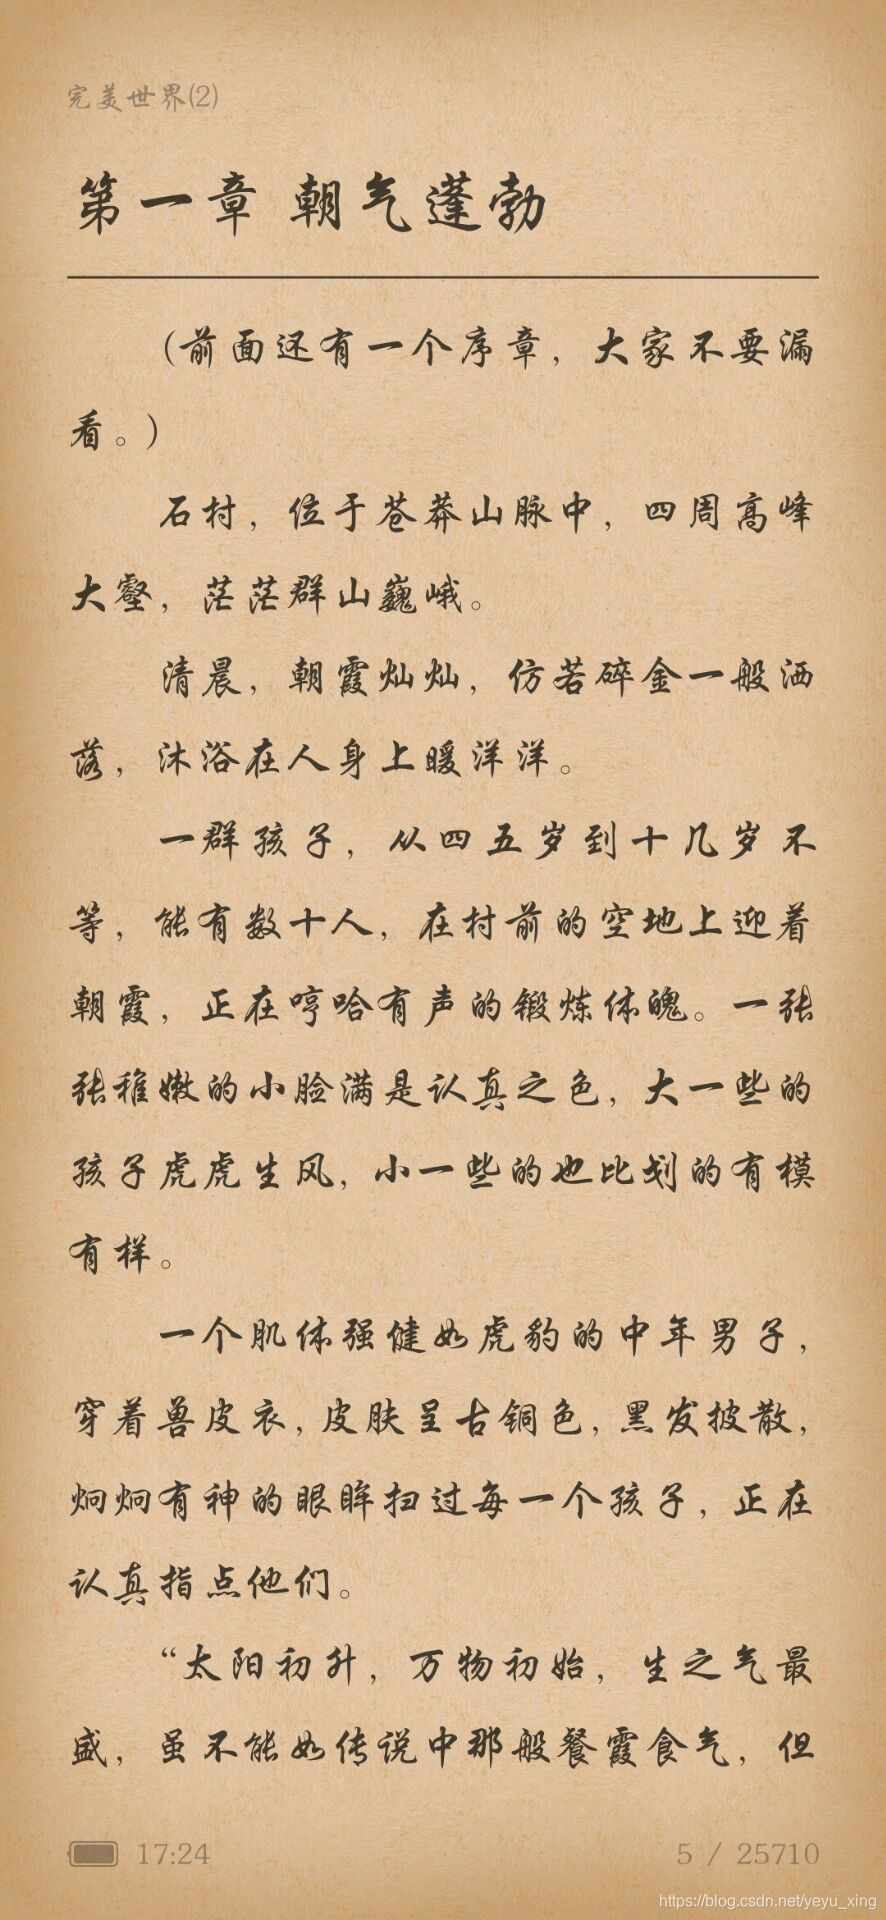 完美世界(2)
第一章 朝气蓬勃
（前面还有一个序章，大家不要漏
看。）
石村，位于苍莽山脉中，四周高峰
大壑，茫茫群山巍峨。
清晨，朝霞灿灿，仿若碎金一般洒
落，沐浴在人身上暖洋洋。
一群孩子，从四五岁到十几岁不
等，能有数十人，在村前的空地上迎着
朝霞，正在哼哈有声的锻炼体魄。一张
张稚嫩的小脸满是认真之色，大一些的
孩子虎虎生风，小一些的也比划的有模
有样。
一个肌体强健如虎豹的中年男子，
穿着兽皮衣，皮肤呈古铜色，黑发披散，
炯炯有神的眼眸扫过每一个孩子，正在
认真指点他们。
“太阳初升，万物初始，生之气最
盛，虽不能如传说中那般餐霞食气，但
17:24
5 / 25710
https://blog.csdn.net/yeyu_xing